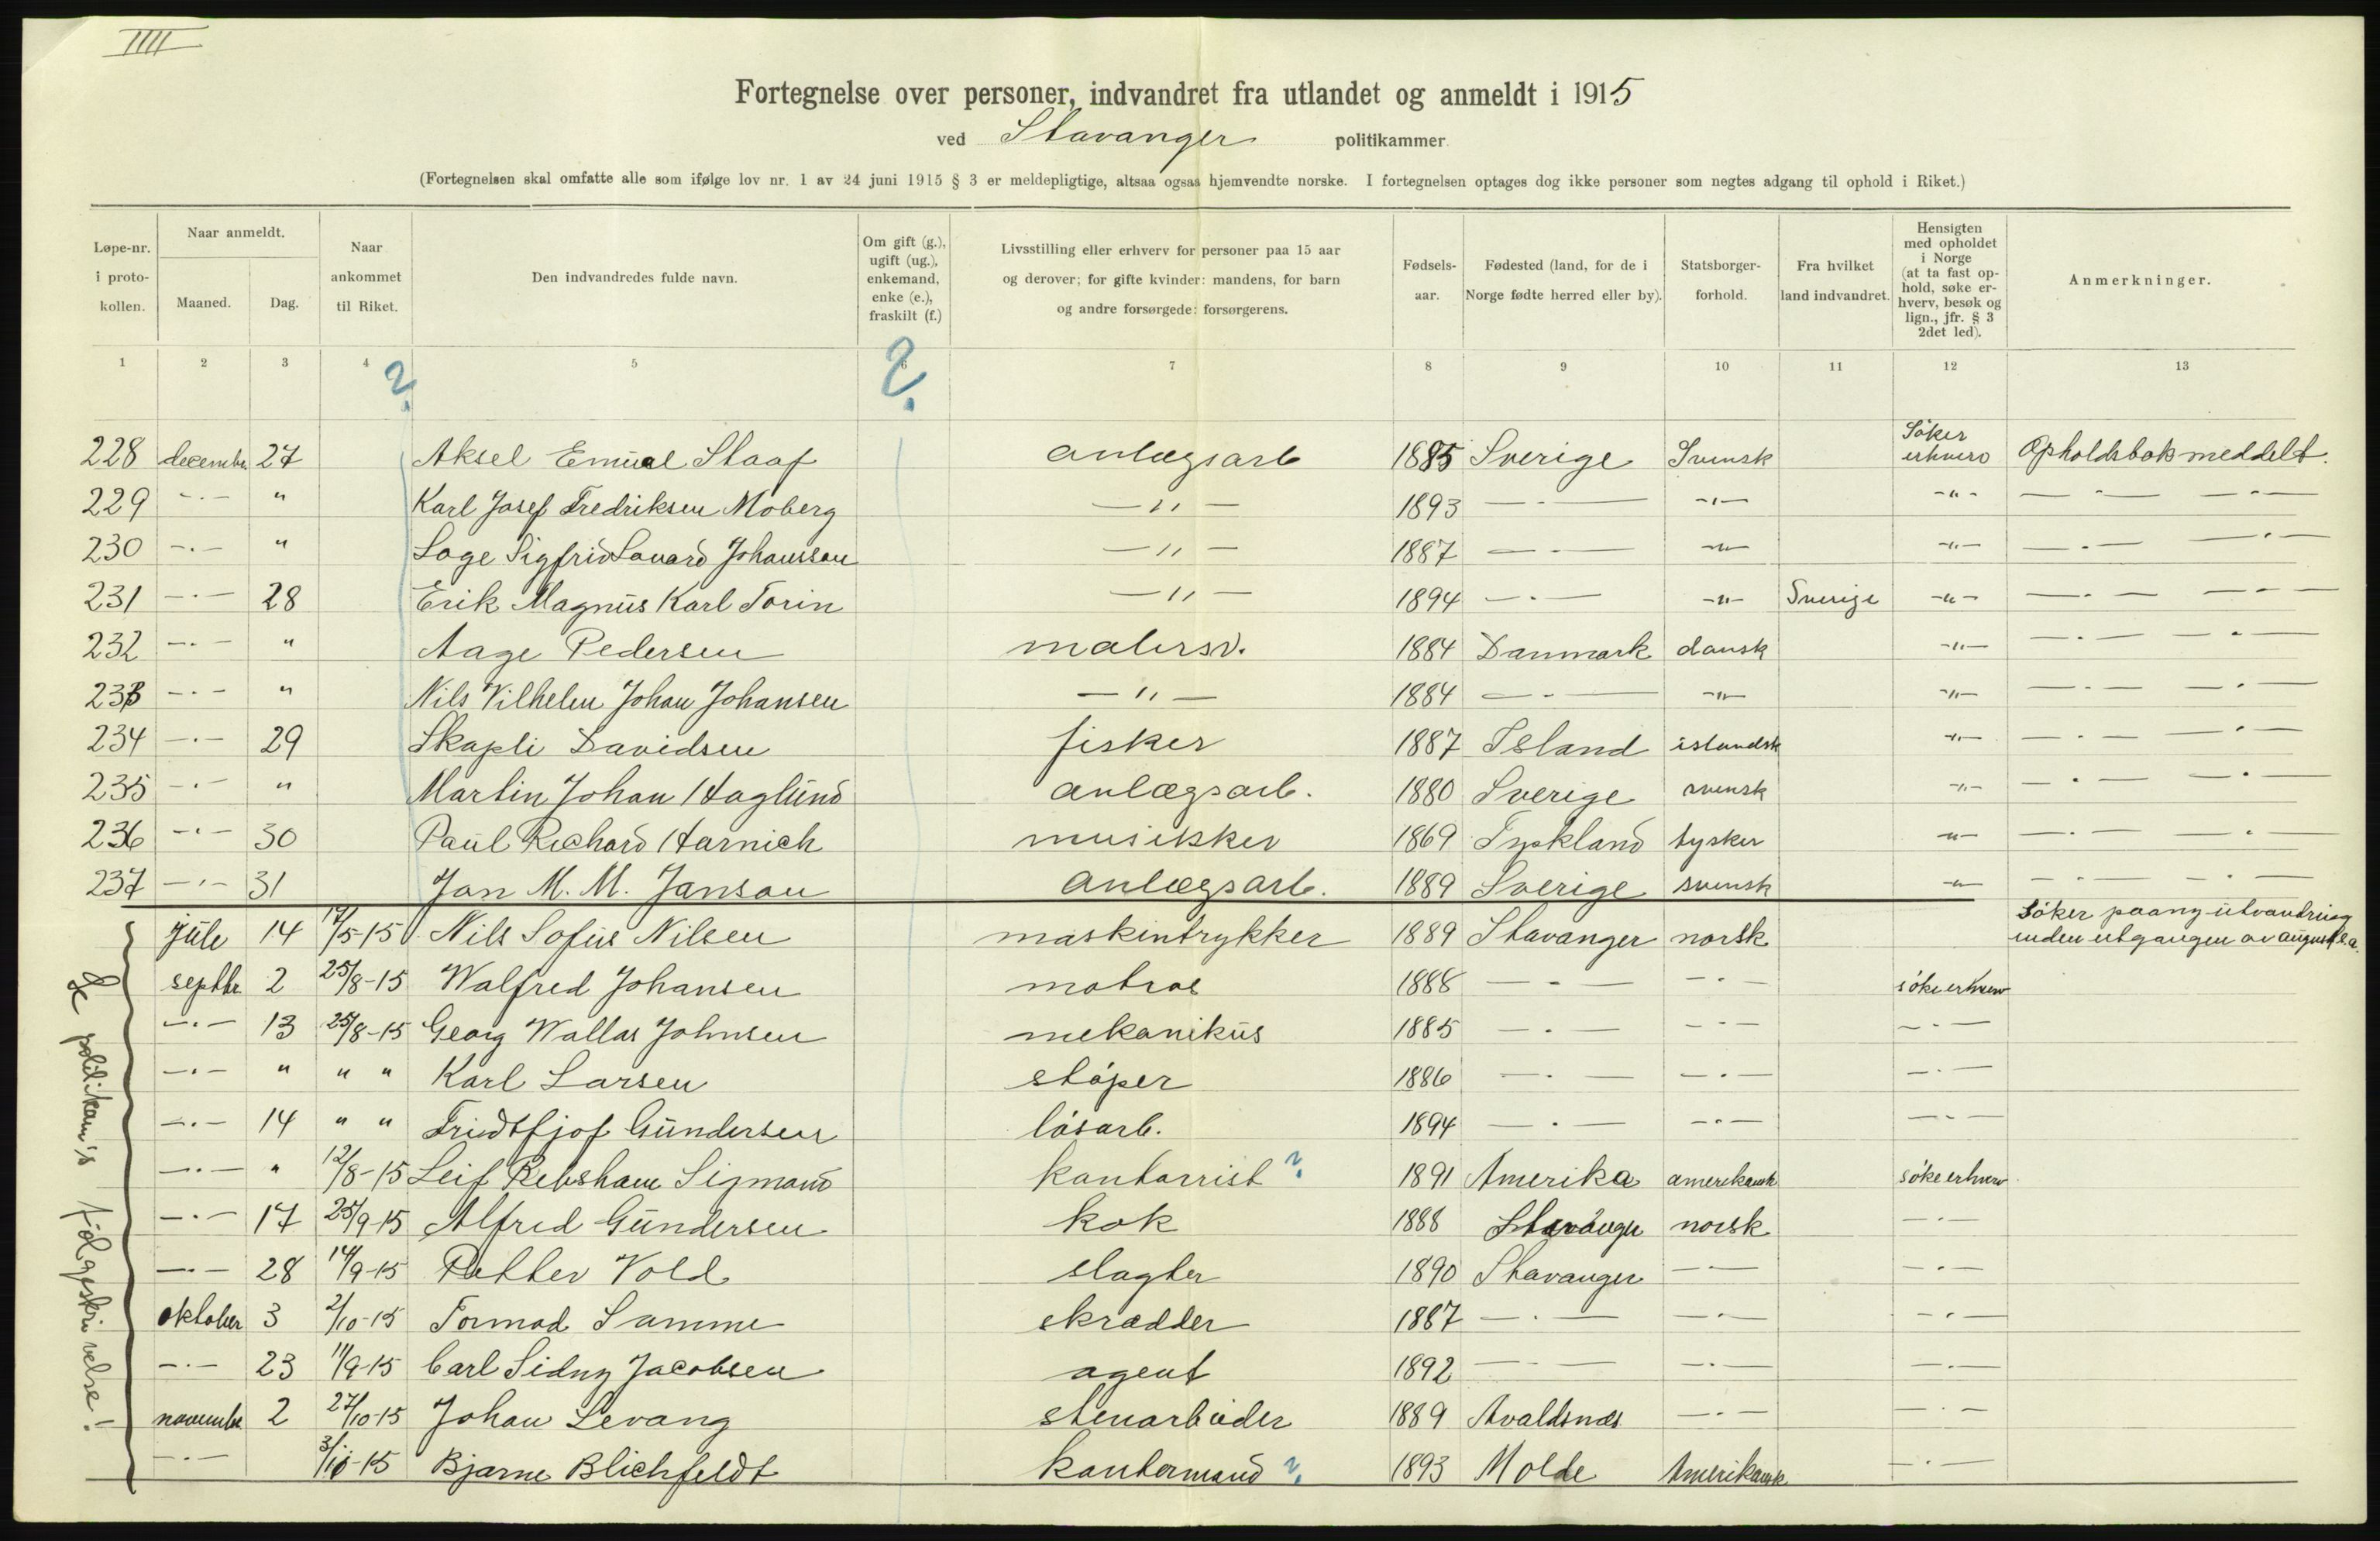 IIII
Fortegnelse over personer, indvandret fra utlandet og anmeldt i 1915
ved Stavanger politikammer
(Fortegnelsen skal omfatte alle som ifølge lov nr. 1 av 24 juni 1915 § 3 er meldepligtige, altsaa ogsaa hjemvendte norske. I fortegnelsen optages dog ikke personer som negtes adgang til ophold i Riket.)
Løpe-nr. i proto-kollen.
Naar anmeldt.
Maaned.
Dag.
Naar ankommet til Riket.
Den indvandredes fulde navn.
Om gift (g.), ugift (ug.), enkemand, enke (e.), fraskilt (f.)
Livsstilling eller erhverv for personer paa 15 aar og derover; for gifte kvinder: mandens, for barn og andre forsørgede: forsørgerens.
Fødsels-aar.
Fødested (land, for de i Norge fødte herred eller by).
Statsborger-forhold.
Fra hvilket land indvandret.
Hensigten med opholdet i Norge (at ta fast op-hold, søke er-hverv, besøk og lign., jfr. § 3 2det led).
Anmerkninger.
1 2 3 4 5 7 8 9 10 11 12 13
? ?
228 decembr. 27 Aksel Emual Staaf anlægsarb 1885 Sverige Svensk Søker erhverv Opholdsbok meddelt.
229 -"- " Karl Josef Fredriksen Moberg -"- 1893 -"- -"- -"- -"- -"-
230 -"- " Sigfrid Johansson -"- 1887 -"- -"- -"- -"- -"-
231 -"- 28 Erik Magnus Karl Torin -"- 1894 -"- -"- Sverige -"- -"- -"-
232 -"- " Aage Pedersen malersv. 1884 Danmark dansk -"- -"- -"-
233 -"- " Nils Vilhelm Johan Johansen -"- 1884 -"- -"- -"- -"- -"-
234 -"- 29 Skapti Davidsen fisker 1887 Island islandsk -"- -"- -"-
235 -"- " Martin Johan Haglund anlægsarb. 1880 Sverige svensk -"- -"- -"-
236 -"- 30 Paul Richard Harnich musikker 1869 Tyskland tysker -"- -"- -"-
237 -"- 31 Jan M. M. Janson anlægsarb. 1889 Sverige svensk -"- -"- -"-
juli 14 17/5-15 Nils Sofus Nilsen maskintrykker 1889 Stavanger norsk Søker paany utvandring inden utgangen av august d.a.
septbr. 2 25/8-15 Walfred Johansen matros 1888 -"- -"- søke erhverv
-"- 13 25/8-15 Georg Wallas Johnsen mekanikus 1885 -"- -"- -"-
-"- " " " Karl Larsen støper 1886 -"- -"- -"-
-"- 14 " " Fridtfjof Gundersen løsarb. 1894 -"- -"- -"-
-"- " 12/8-15 Leif Sigmond kontorrist ? 1891 Amerika amerikansk søke erhverv
-"- 17 25/9-15 Alfred Gundersen kok 1888 Stavanger norsk -"-
-"- 28 14/9-15 Petter Vold slagter 1890 Stavanger -"- -"-
oktober 3 2/10-15 Tormod Samme skrædder 1887 -"- -"- -"-
-"- 23 11/9-15 Carl Sidny Jacobsen agent 1892 -"- -"- -"-
novembr. 2 27/10-15 Johan Levang stenarbeider 1889 Avaldsnes -"- -"-
-"- 3/10-15 Bjarne Blichfeldt kontormand ? 1893 Molde Amerikansk -"-
Se politikam's følgeskrivelse!